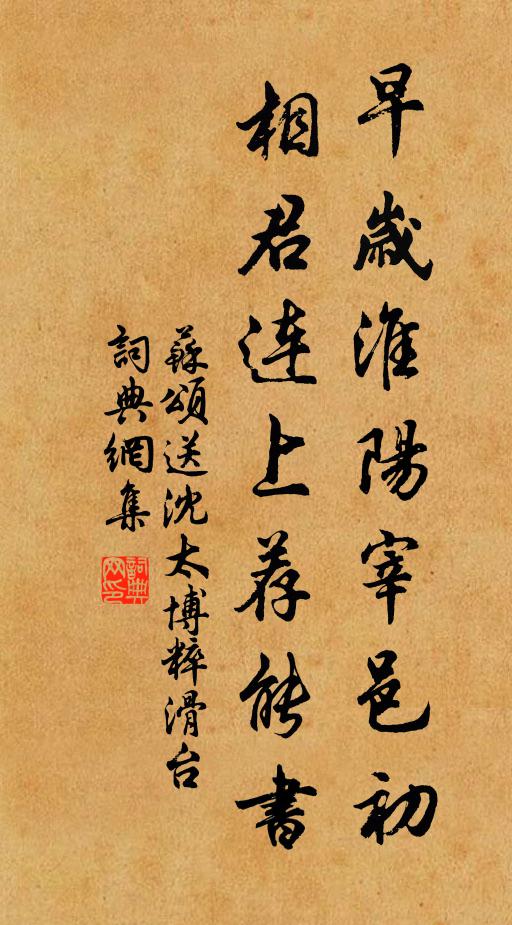 早歲淮陽宰邑初
相君連上荐能書
蘇頌送沈太博粹滑台
詞典網集
詞典
网印